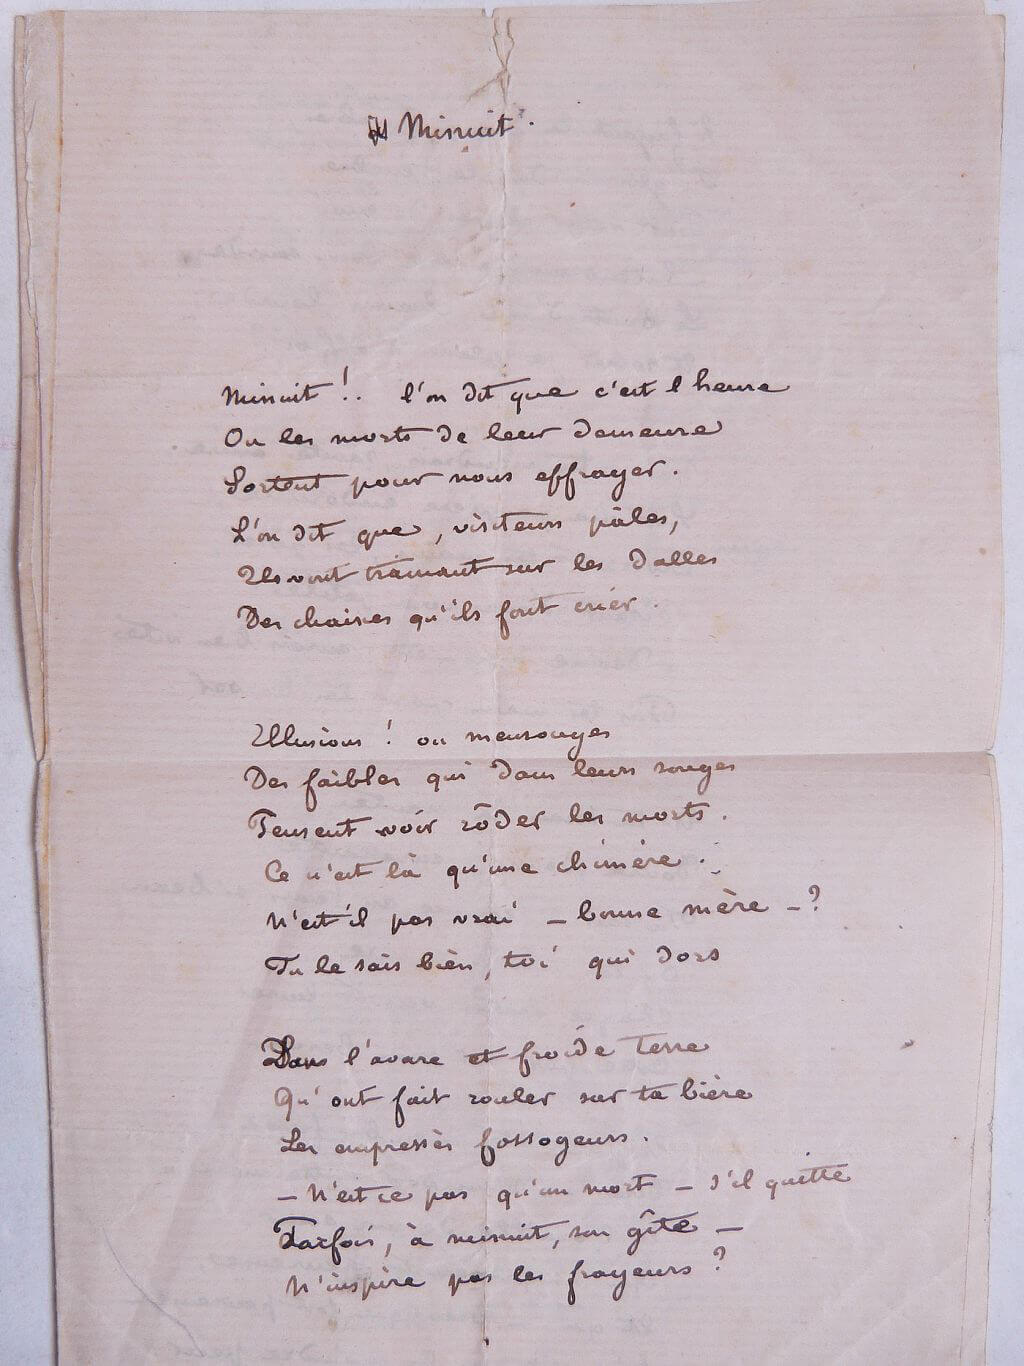 Minuit.
Minuit !.. l'on dit que c'est l heure
Ou les morts de leur demeure
Sortent pour nous effrayer.
L'on dit que, visiteurs pâles,
Ils vont trainant sur les dalles
Des chaines qu'ils font crier.
Illusions ! ou mensonges
Des faibles qui dans leurs songes
Pensent voir rôder les morts.
Ce n'est là qu'une chimère.
N'est'il pas vrai – bonne mère – ?
Tu le sais bien, toi qui dors
Dans l'avare et froide terre
Qu'ont fait rouler sur ta bière
Les empressés fossoyeurs.
– N'est ce pas qu'un mort – s'il quitte
Parfois, à minuit, son gîte –
N'inspire pas les frayeurs ?